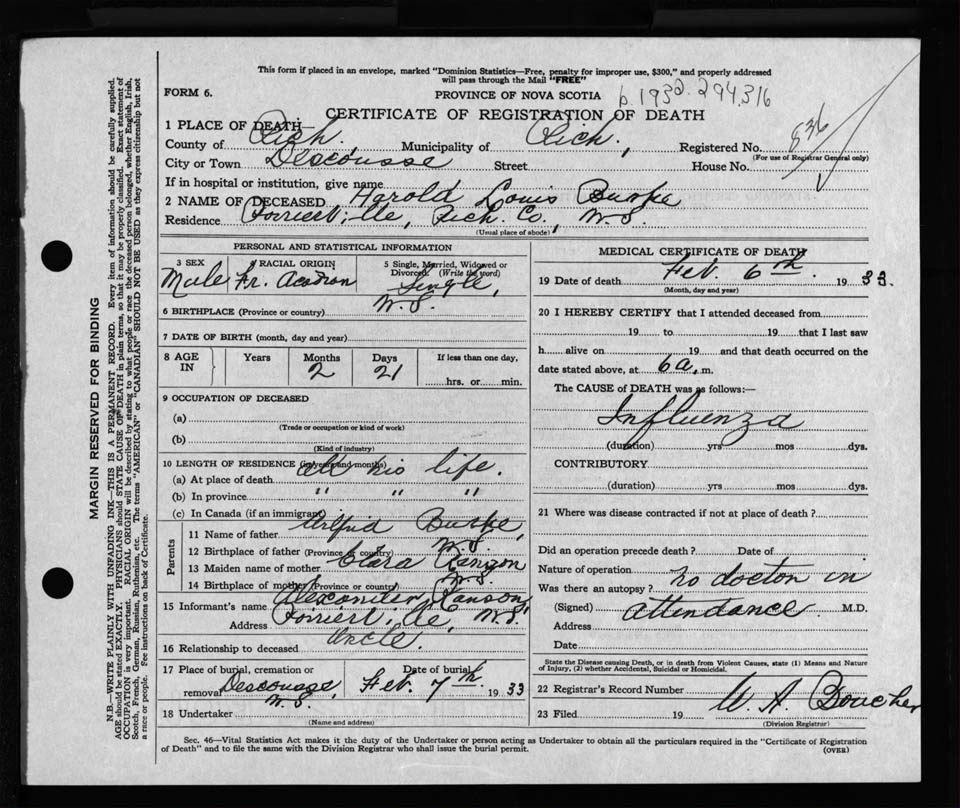 This form if placed in an envelope, marked "Dominion Statistics—Free, penalty for improper use, $300," and properly addressed
will pass through the Mail "FREE"
FORM 6.
PROVINCE OF NOVA SCOTIA
b. 1932. 294316
CERTIFICATE OF REGISTRATION OF DEATH
836
1 PLACE OF DEATH—
County of Rich. Municipality of Rich, Registered No.
(For use of Registrar General only)
City or Town Descousse Street House No.
If in hospital or institution, give name
2 NAME OF DECEASED Harold Louis Burke
Residence Poirierville, Rich. Co, N.S
(Usual place of abode)
PERSONAL AND STATISTICAL INFORMATION
3 SEX
Male
4 RACIAL ORIGIN
Fr. Acadian
5 Single, Married, Widowed or
Divorced. (Write the word)
Single,
6 BIRTHPLACE (Province or country) N.S.
7 DATE OF BIRTH (month, day and year)
8 AGE IN Years Months Days If less than one day,
2 21 hrs. or min.
9 OCCUPATION OF DECEASED
(a)
(Trade or occupation or kind of work)
(b)
(Kind of industry)
10 LENGTH OF RESIDENCE (in years and months)
(a) At place of death all his life.
(b) In province " " "
(c) In Canada (if an immigrant)
Parents
11 Name of father Burke,
12 Birthplace of father (Province or country) N.S.
13 Maiden name of mother Clara
14 Birthplace of mother (Province or country) N.S.
15 Informant's name Alexander Samson,
Address Poirierville, N.S.
16 Relationship to deceased Uncle.
17 Place of burial, cremation or Date of burial
removal Descousse, N.S. Feb. 7th 1933
18 Undertaker
(Name and address)
MEDICAL CERTIFICATE OF DEATH
19 Date of death Feb. 6th. 1933.
(Month, day and year)
20 I HEREBY CERTIFY that I attended deceased from
19 to 19 that I last saw
h alive on 19 and that death occurred on the
date stated above, at 6 a. m.
The CAUSE of DEATH was as follows:—
Influenza
(duration) yrs mos dys.
CONTRIBUTORY
(duration) yrs mos dys.
21 Where was disease contracted if not at place of death?
Did an operation precede death? Date of
Nature of operation
Was there an autopsy? no doctor in
(Signed) attendance. M.D.
Address
Date
State the Disease causing Death, or in death from Violent Causes, state (1) Means and Nature
of Injury, (2) whether Accidental, Suicidal or Homicidal.
22 Registrar's Record Number
23 Filed 19 W. A. Boucher
(Division Registrar)
Sec. 46—Vital Statistics Act makes it the duty of the Undertaker or person acting as Undertaker to obtain all the particulars required in the "Certificate of Registration
of Death" and to file the same with the Division Registrar who shall issue the burial permit.
(OVER)
MARGIN RESERVED FOR BINDING
N.B.—WRITE PLAINLY WITH UNFADING INK—THIS IS A PERMANENT RECORD. Every item of information should be carefully supplied.
AGE should be stated EXACTLY. PHYSICIANS should STATE CAUSE OF DEATH in plain terms, so that it may be properly classified. Exact statement of
OCCUPATION is very important. RACIAL ORIGIN will be described by stating to what people or race the deceased person belonged, whether English, Irish,
Scotch, French, German, Russian, Ruthenian, etc. The terms "AMERICAN" or "CANADIAN" SHOULD NOT BE USED as they express citizenship but not
a race or people. See instructions on back of Certificate.